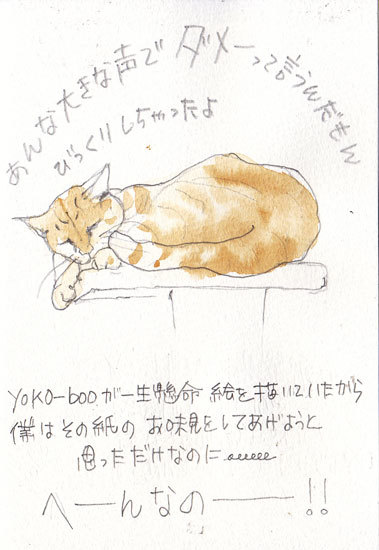 あんな大きな声でダメーって言うんだもん
びっくりしちゃったよ
YOKO-booが一生懸命 絵を描いていたから
僕はその紙の お味見をしてあげようと
思っただけなのに
へーんなのー!!